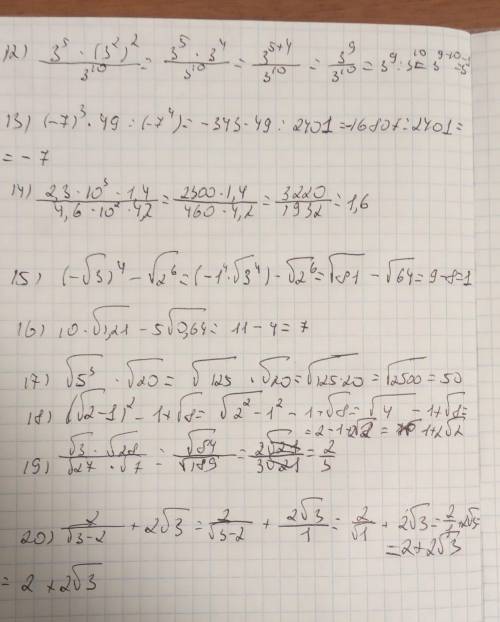 12) (3^5 · (3^2)^2)/3^10 = (3^5 · 3^4)/3^10 = 3^(5+4)/3^10 = 3^9/3^10 = 3^9 : 3^10 = 3^(9-10) =
13) (-7)^3 · 49 : (-7^4) = -343 · 49 : 2401 = -16807 : 2401 =
= -7
14) (2,3 · 10^3 · 1,4)/(4,6 · 10^2 · 4,2) = (2300 · 1,4)/(460 · 4,2) = 3220/1932 = 1,6
15) (-√3)^4 - √2^6 = (-1^4 · √3^4) - √2^6 = √81 - √64 = 9-8=1
16) 10 · √1,21 - 5√0,64 = 11 - 4 = 7
17) √5^3 · √20 = √125 · √20 = √125·20 = √2500 = 50
18) (√2-1)^2 - 1+√8 = √2^2 - 1^2 - 1+√8 = √4 - 1+√8 =
= 2-1+2√2 = 1+2√2
19) (√3 · √28)/(√27 · √7) = √84/√189 = 2√21/3√21 = 2/3
20) 2/(√3-2) + 2√3 = 2/(√3-2) + 2√3/1 = 2/√1 + 2√3 = 2/1 + 2√3
= 2+2√3
= 2 + 2√3